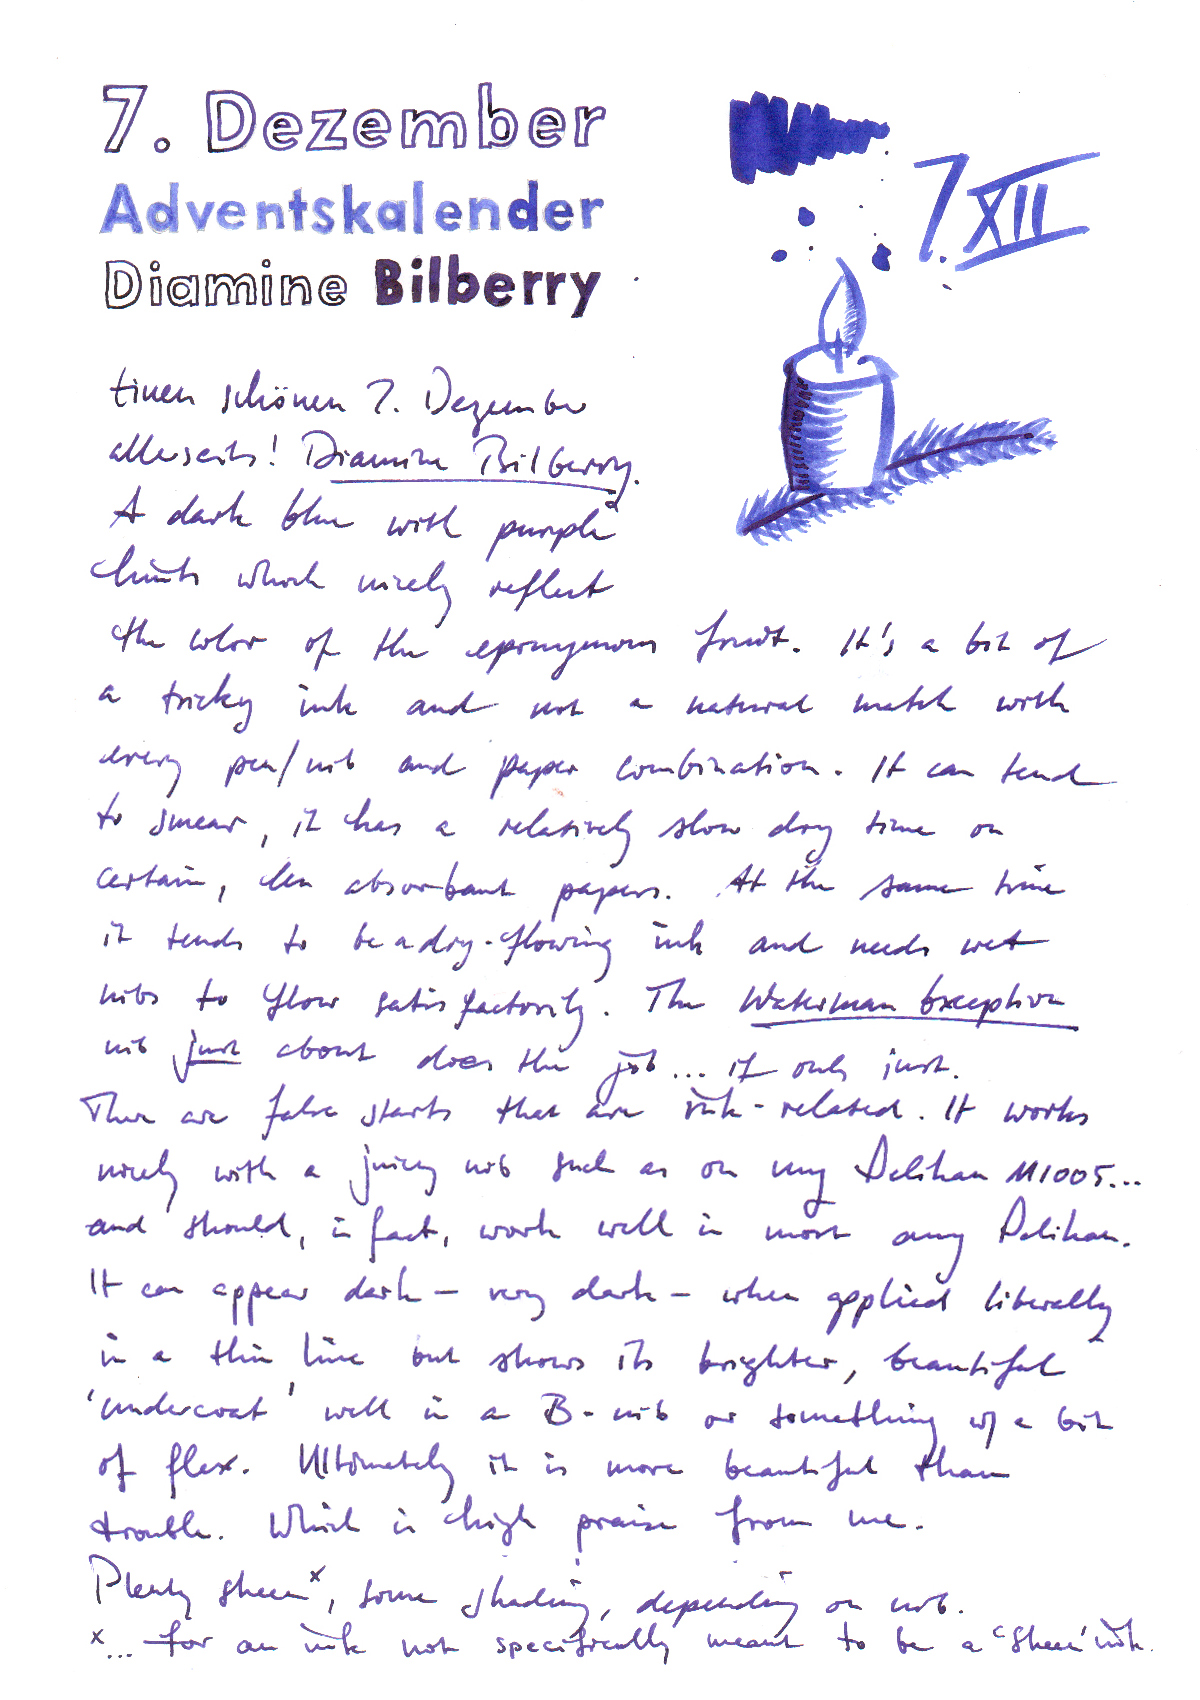 7. Dezember
Adventskalender
Diamine Bilberry
7. XII
Einen schönen 7. Dezember
allerseits! Diamine Bilberry.
A dark blue with purple
hints which nicely reflect
the color of the eponymous fruit. It's a bit of
a tricky ink and not a natural match with
every pen/nib and paper combination. It can tend
to smear, it has a relatively slow dry time on
certain, less absorbant papers. At the same time
it tends to be a dry-flowing ink and needs wet
nibs to flow satisfactorily. The Waterman Exception
nib just about does the job... if only just.
There are false starts that are ink-related. It works
nicely with a juicy nib such as on my Pelikan M1005...
and should, in fact, work well in most any Pelikan.
It can appear dark – very dark – when applied liberally
in a thin line but shows its brighter, beautiful
'undercoat' well in a B-nib or something w/ a bit
of flex. Ultimately it is more beautiful than
trouble. Which is high praise from me.
Plenty sheen x, some shading, depending on nib.
x... for an ink not specifically meant to be a 'sheen' ink.